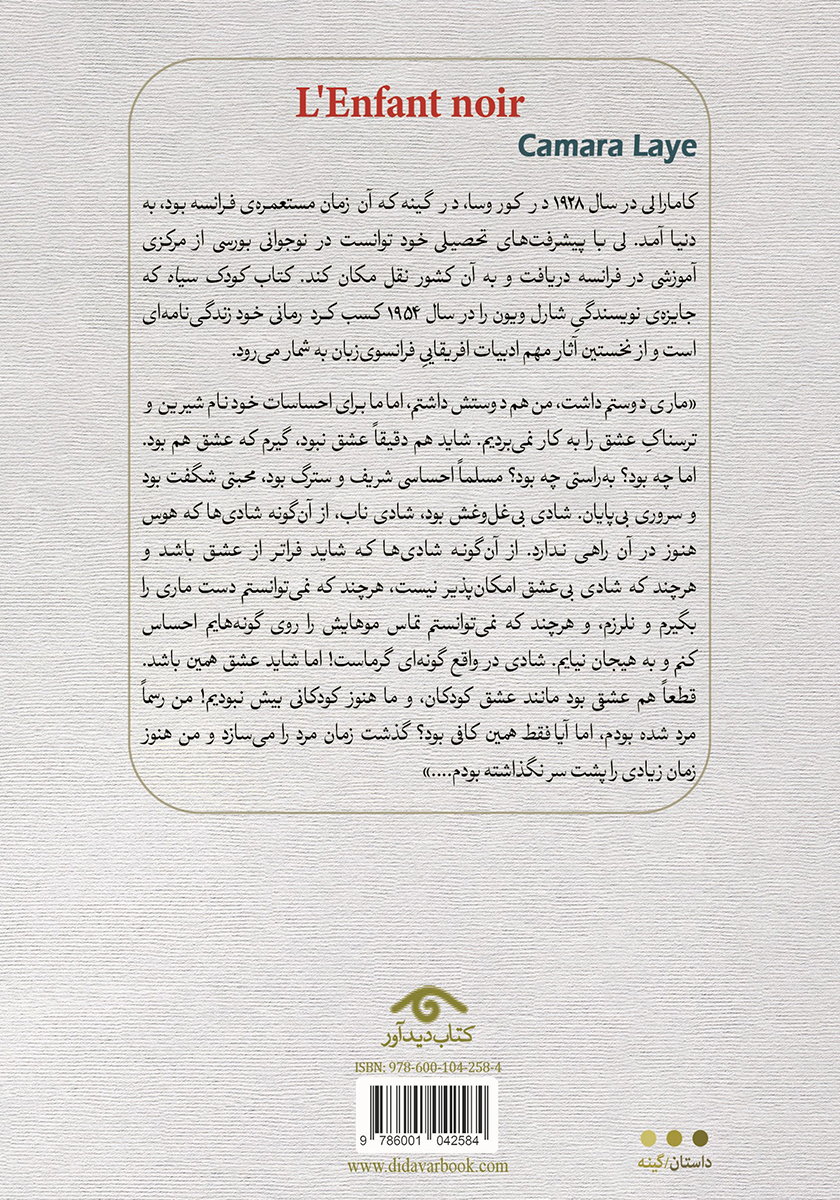 L'Enfant noir
Camara Laye
کامارا لی در سال ۱۹۲۸ در کوروسا، در گینه که آن زمان مستعمره‌ی فرانسه بود، به
دنیا آمد. لی با پیشرفت‌های تحصیلی خود توانست در نوجوانی بورسی از مرکزی
آموزشی در فرانسه دریافت و به آن کشور نقل مکان کند. کتاب کودک سیاه که
جایزه‌ی نویسندگیِ شارل ویون را در سال ۱۹۵۴ کسب کرد رمانی خود زندگی‌نامه‌ای
است و از نخستین آثار مهم ادبیات افریقاییِ فرانسوی‌زبان به شمار می‌رود.
«ماری دوستم داشت، من هم دوستش داشتم، اما ما برای احساسات خود نام شیرین و
ترسناکِ عشق را به کار نمی‌بردیم. شاید هم دقیقاً عشق نبود، گیرم که عشق هم بود.
اما چه بود؟ به‌راستی چه بود؟ مسلماً احساسی شریف و سترگ بود، محبتی شگفت بود
و سروری بی‌پایان. شادی بی‌غل‌وغش بود، شادی ناب، از آن‌گونه شادی‌ها که هوس
هنوز در آن راهی ندارد. از آن‌گونه شادی‌ها که شاید فراتر از عشق باشد و
هرچند که شادی بی‌عشق امکان‌پذیر نیست، هرچند که نمی‌توانستم دست ماری را
بگیرم و نلرزم، و هرچند که نمی‌توانستم تماس موهایش را روی گونه‌هایم احساس
کنم و به هیجان نیایم. شادی در واقع گونه‌ای گرماست! اما شاید عشق همین باشد.
قطعاً هم عشقی بود مانند عشق کودکان، و ما هنوز کودکانی بیش نبودیم! من رسماً
مرد شده بودم، اما آیا فقط همین کافی بود؟ گذشت زمان مرد را می‌سازد و من هنوز
زمان زیادی را پشت سر نگذاشته بودم....»
کتاب دیدآور
ISBN: 978-600-104-258-4
9 786001 042584
www.didavarbook.com
داستان/گینه